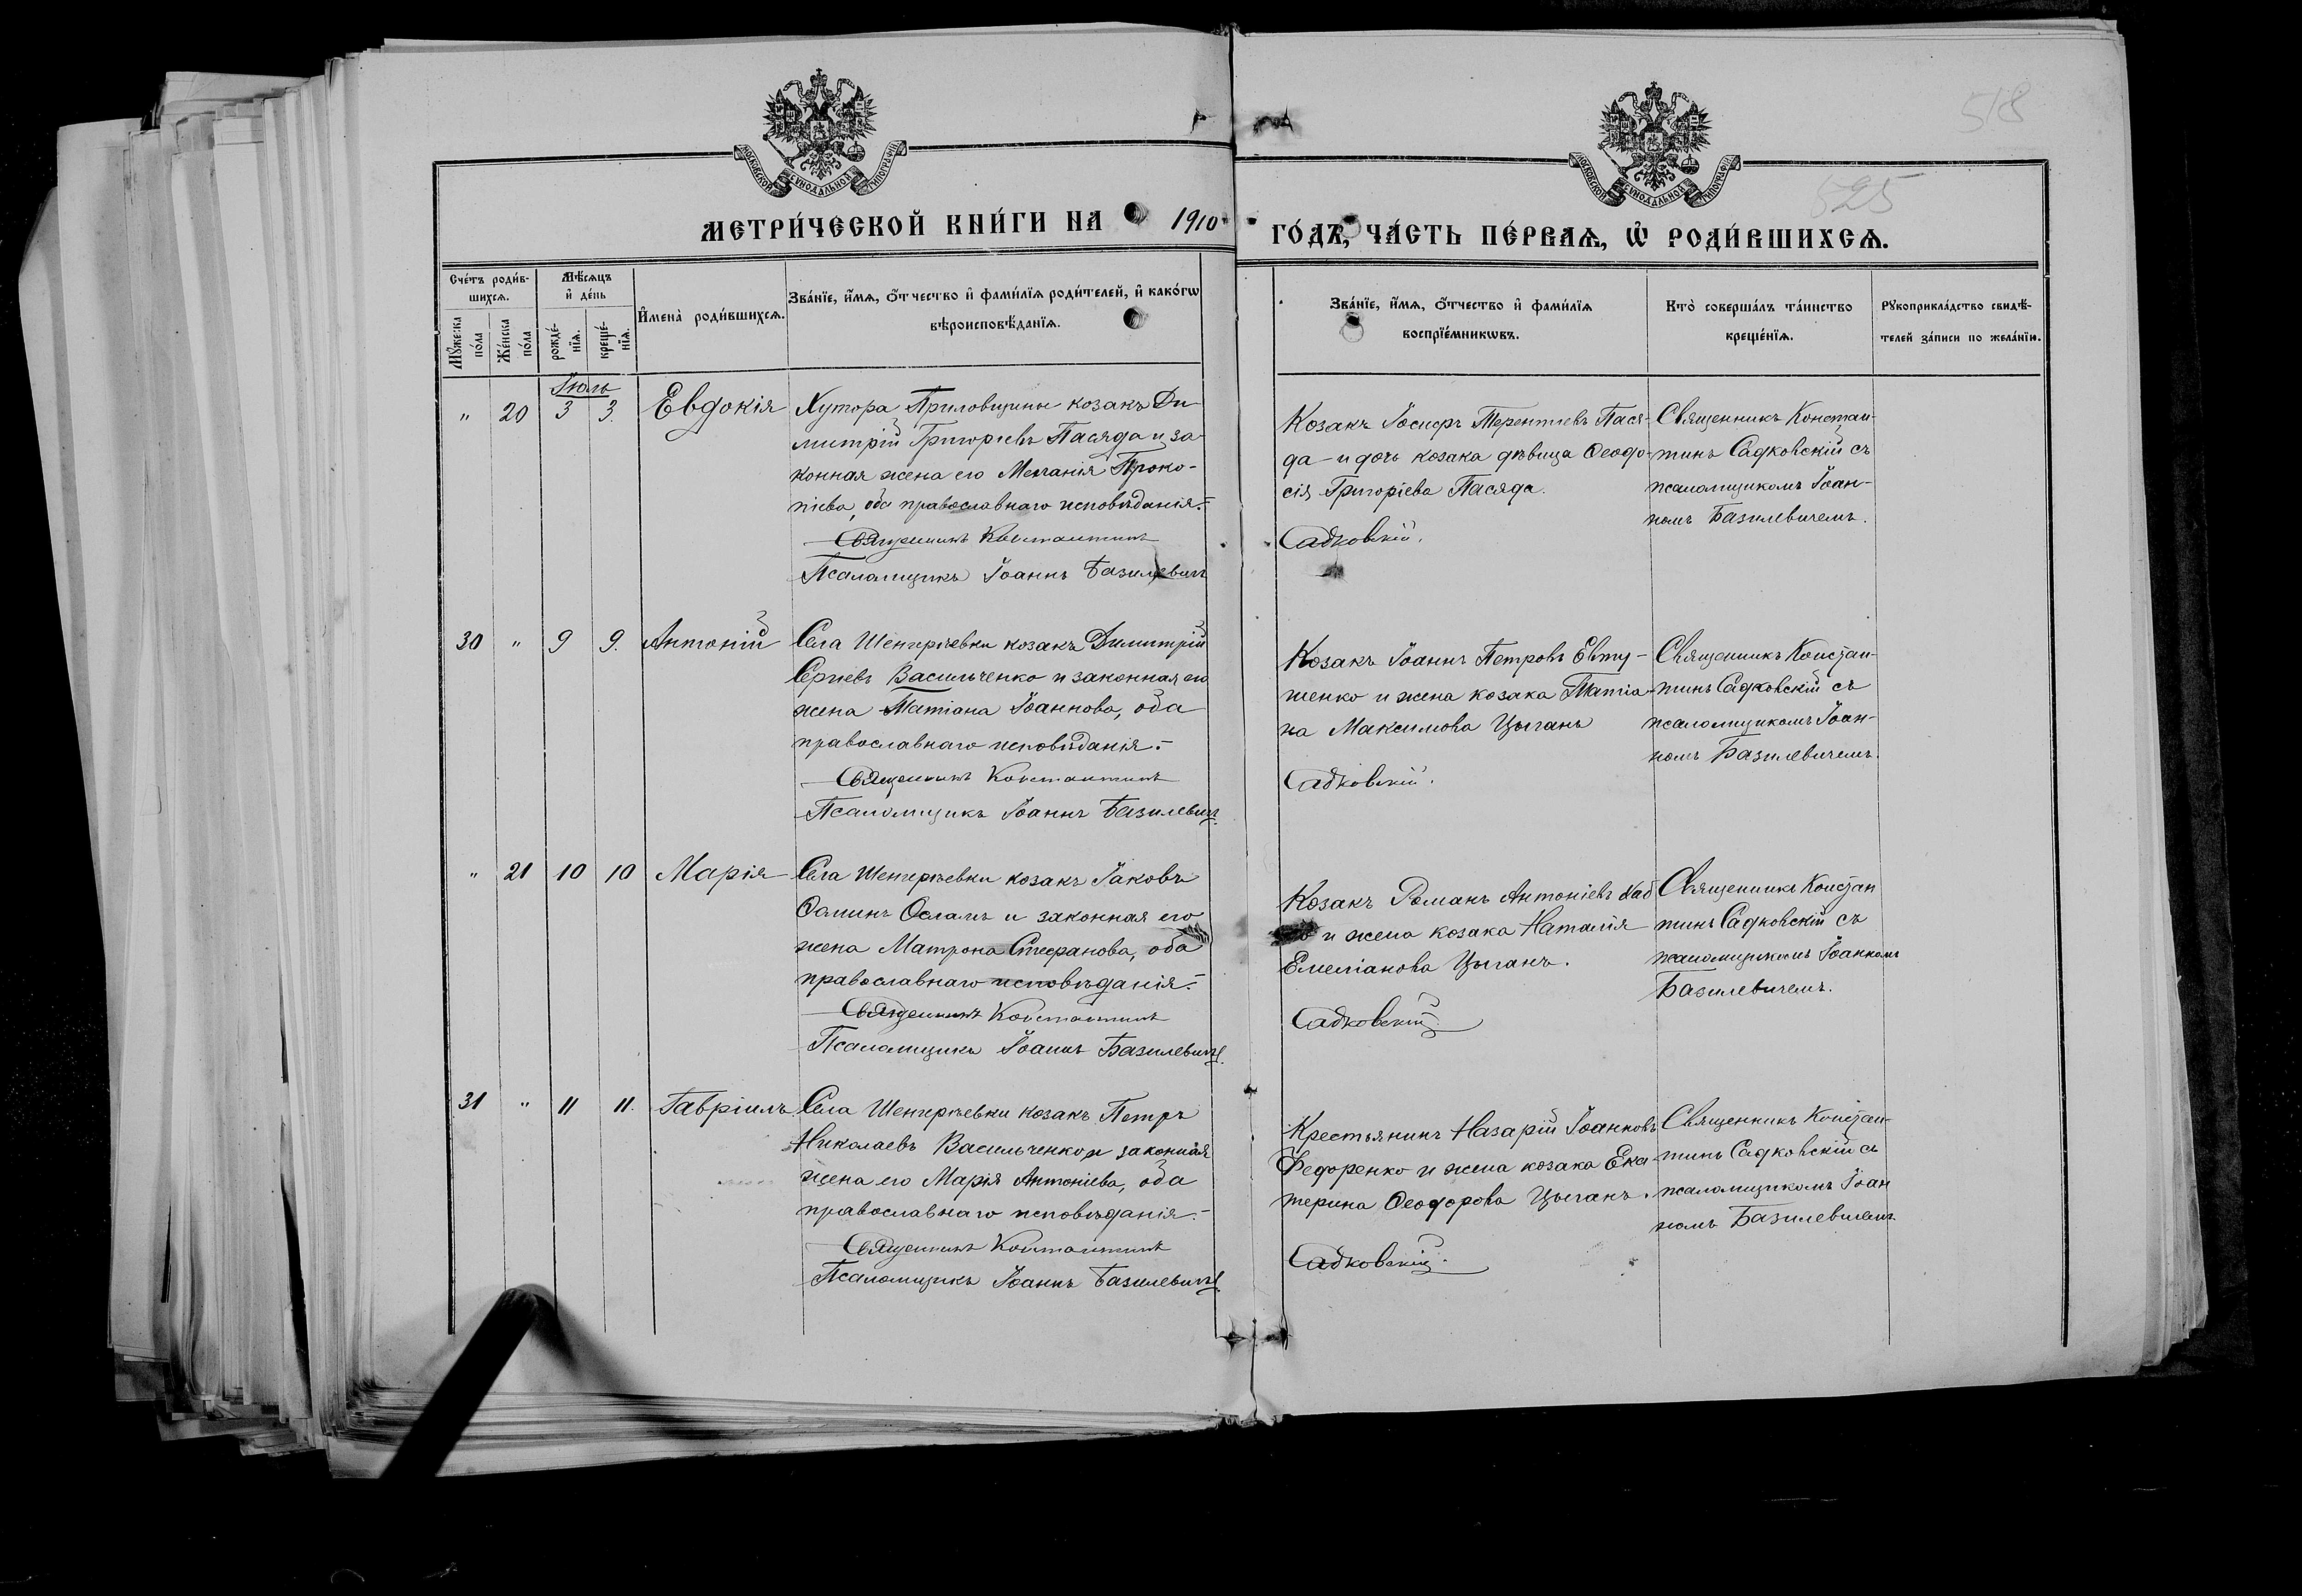 518
525
МОСКОВСКОЙ СѴНОДАЛЬНОЙ ТИПОГРАФІИ
МОСКОВСКОЙ СѴНОДАЛЬНОЙ ТИПОГРАФІИ
МЕТРИ́ЧЕСКОЙ КНИ́ГИ НА 1910 ГО́ДЪ, ЧА́СТЬ ПЕ́РВАѦ, Ѡ҆ РОДИ́ВШИХСѦ.
Сче́тъ роди́в-
шихсѧ.
Мꙋ́жеска
по́ла
Же́нска
по́ла
Мѣ́сѧцъ
и҆ де́нь
рожде́-
нїѧ.
креще́-
нїѧ.
И҆мена̀ роди́вшихсѧ.
Зва́нїе, и҆́мѧ, ѻ҆́тчество и҆ фами́лїѧ роди́телей, и҆ како́гѡ
вѣроисповѣ́данїѧ.
Зва́нїе, и҆́мѧ, ѻ҆́тчество и҆ фами́лїѧ
воспрїе́мникѡвъ.
Кто̀ соверша́лъ та́инство
креще́нїѧ.
Рꙋкоприкла́дство свидѣ́-
телей за́писи по жела́нїю.
Іюль
" 20 3 3. Евдокія
Хутора Приловщины козакъ Ди-
митрій Григоріевъ Пасяда и за-
конная жена его Меланія Проко-
піева, оба православнаго исповѣданія.-
Священникъ Константинъ
Псаломщикъ Іоаннъ Базилевичъ
Козакъ Іосифъ Терентіевъ Пася-
да - и дочь козака дѣвица Ѳеодо-
сія Григоріева Пасяда.
Садковскій.
Священникъ Констан-
тинъ Садковскій съ
псаломщикомъ Іоан-
номъ Базилевичемъ.
30 " 9 9. Антоній
Села Шенгеріевки козакъ Димитрій
Сергіевъ Васильченко и законная его
жена Татіана Іоаннова, оба
православнаго исповѣданія.-
Священникъ Константинъ
Псаломщикъ Іоаннъ Базилевичъ.
Козакъ Іоаннъ Петровъ Евту-
шенко и жена козака Татіа-
на Максимова Цыганъ
Садковскій.
Священникъ Констан-
тинъ Садковскій съ
псаломщикомъ Іоан-
номъ Базилевичемъ.
" 21 10 10 Марія
Села Шенгеріевки козакъ Іаковъ
Ѳоминъ Осламъ и законная его
жена Матрона Стефанова, оба
православнаго исповѣданія.-
Священникъ Константинъ
Псаломщикъ Іоаннъ Базилевичъ.
Козакъ Романъ Антоніевъ
и жена козака Наталія
Емеліанова Цыганъ.
Садковскій
Священникъ Констан
тинъ Садковскій съ
псаломщикомъ Іоанномъ
Базилевичемъ.
31 " 11 11. Гавріилъ
Села Шенгеріевки козакъ Петръ
Николаевъ Васильченко и законная
жена его Марія Антоніева, оба
православнаго исповѣданія.-
Священникъ Константинъ
Псаломщикъ Іоаннъ Базилевичъ.
Крестьянинъ Назарій Іоанновъ
Федоренко и жена козака Ека-
терина Ѳеодорова Цыганъ.
Садковскій.
Священникъ Констан-
тинъ Садковскій съ
псаломщикомъ Іоан
номъ Базилевичемъ